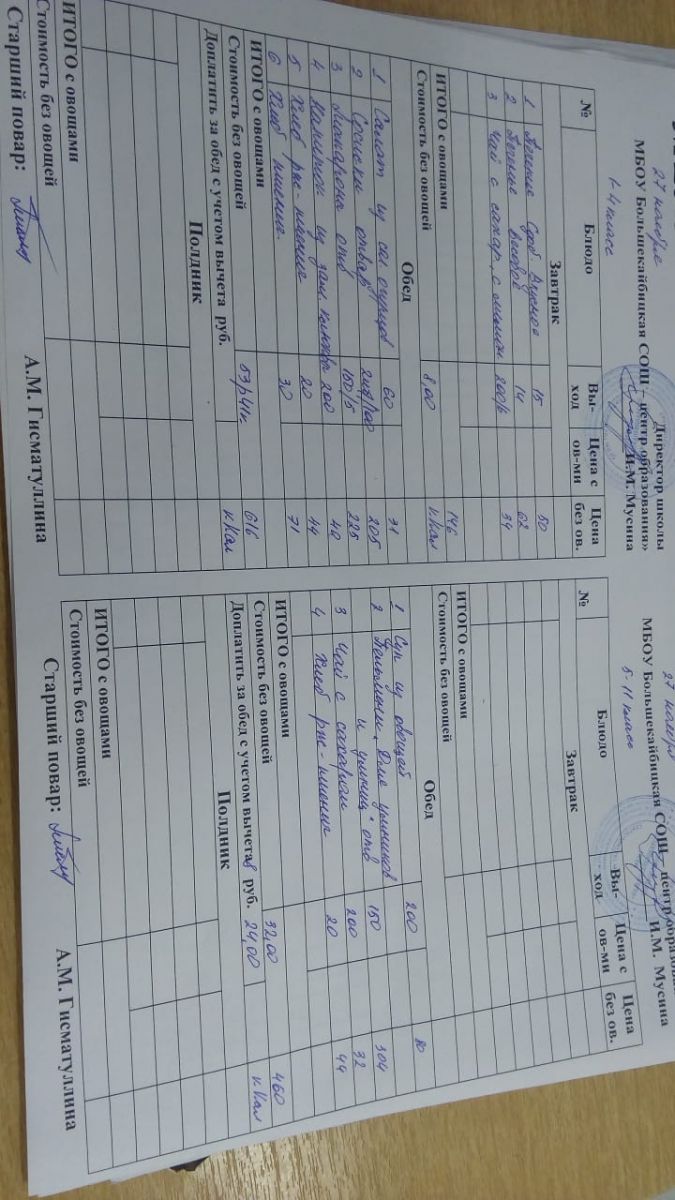 27 ноября
Директор школы
МБОУ Большекайбицкая СОШ - центр образования»
И.М. Мусина
1-4 класс
№ Блюдо Вы-ход Цена с ов-ми Цена без ов.
Завтрак
1 Печенье 15 50
2 Печенье 14 62
3 Чай с сахар, с 200/6 34
ИТОГО с овощами 146
Стоимость без овощей 8,00 кКал
Обед
1 Салат из сол огурцов 60 31
2 Сосиски отвар 205
3 Макароны отв 150/5 225
4 Напиток из зам 200 40
5 Хлеб рже-пшение 20 44
6 Хлеб пшенич. 30 71
ИТОГО с овощами 616
Стоимость без овощей 53р41к кКал
Доплатить за обед с учетом вычета руб.
Полдник
ИТОГО с овощами
Стоимость без овощей
Старший повар: А.М. Гисматуллина
27 ноября
МБОУ Большекайбицкая СОШ- центр
И.М. Мусина
5-11 класс
№ Блюдо Вы-ход Цена с ов-ми Цена без ов.
Завтрак
ИТОГО с овощами
Стоимость без овощей
Обед
1 Суп из овощей 200 80
2 Пельмени. Для 150 304
и отв
3 Чай с сахаром 200 32
4 Хлеб рже-пшение 20 44
ИТОГО с овощами 32,00 460
Стоимость без овощей 24,00 кКал
Доплатить за обед с учетом вычета руб.
Полдник
ИТОГО с овощами
Стоимость без овощей
Старший повар: А.М. Гисматуллина